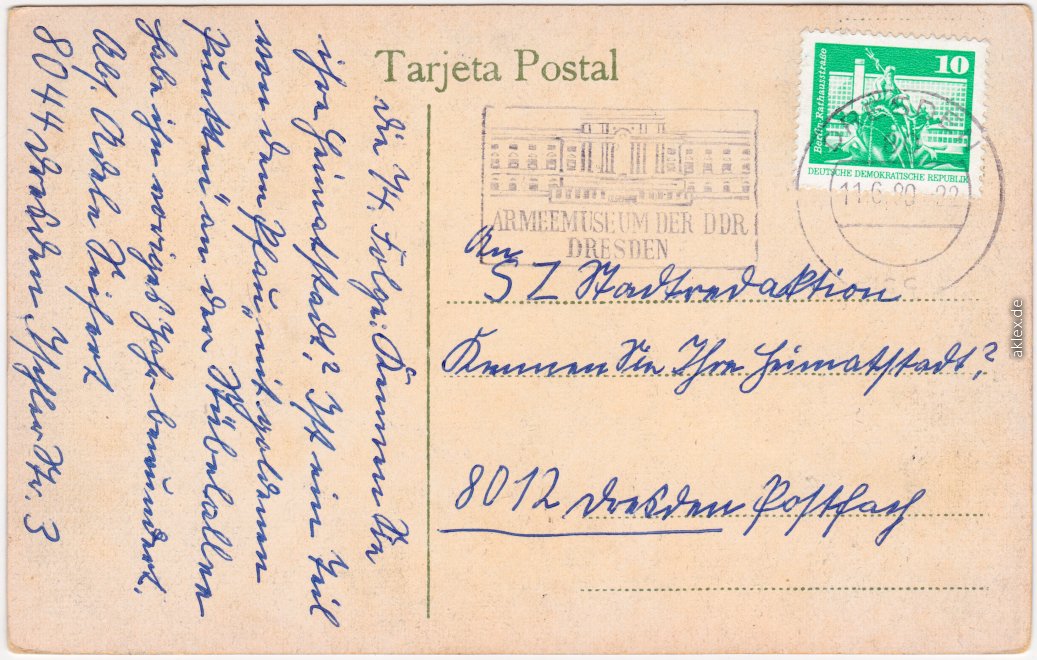 Tarjeta Postal
10
Berlin, Rathausstraße
DEUTSCHE DEMOKRATISCHE REPUBLIK
11.6.80-22
ARMEEMUSEUM DER DDR
DRESDEN
An
SZ Stadtredaktion
Kennen Sie Ihre Heimatstadt?
8012 Dresden Postfach
Die 74. Folge: Kennen Sie
ihre Heimatstadt? Ist ein Teil
von dem "Pfau mit goldenen
Punkten" an der Stübelallee
habe ihn voriges Jahr bewundert.
Abs. Adele Seifert
8044 Dresden Str. 3
aklex.de